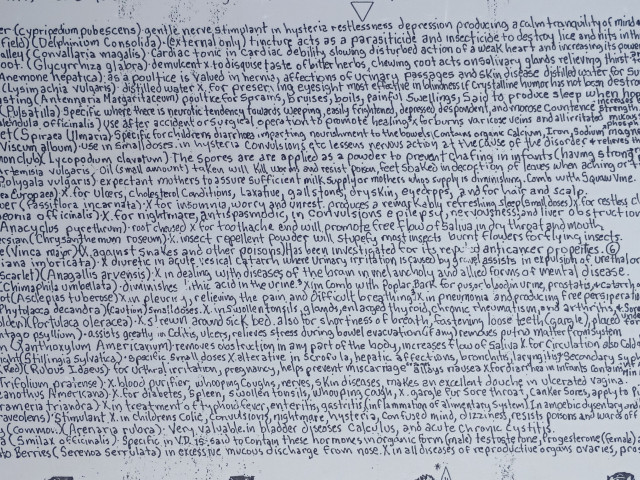 er (cypripedum pubescens) gentle nerve stimulant in hysteria restlessness depression producing a calm tranquility of mind
field) (Delphinium Consolida). (external only) tincture acts as a parasiticide and insecticide to destroy lice and nits in the
alley (Convallaria magalis). Cardiac tonic in Cardiac debility slowing disturbed action of a weak heart and increasing its power
oot. (Glycyrrhiza glabra). demulcent X to disguise taste of bitter herbs, chewing root acts on salivary glands relieving thirst
Anemone hepatica) as a poultice is valued in hernia, affections of urinary passages and skin disease distilled water for
(Lysimachia vulgaris) distilled water X for preserving eyesight most effective in blindness if Crystalline humor has not been
sting (Antennaria Margaritaceum) poultice for Sprains, bruises, boils, painful swellings, Said to produce sleep when hops
(Pulsatilla) Specific where there is neurotic tendency towards weeping, easily frightened, depressed despondent, and morose Countence strength
ndula officinalis) Use after accident or surgical operation to promote healing X for burns varicose veins and all irritated
et (Spiraea Ulmaria) Specific for childrens diarrhoea imparting nourishment to the bowels (Contains organic Calcium, Iron, Sodium, magnes
Viscum album) use in small doses. in hysteria Convulsions etc lessens nervous action at the cause of the disorder + relieves
nonclub) (Lycopodium clavatum) The spores are applied as a powder to prevent chafing in infants (having strong
Artemisia vulgaris) Oil (small amount) taken will kill worms and resist poison, feet soaked in decoction at least when aching or
Polygala vulgaris) expectant mothers to assure sufficient milk supply or mothers who's supply is diminishing, Comb with Squaw Vine.
ea Europaea) X for Ulcers, Cholesterol Conditions, Laxative, gallstones, dry skin, eyedrops, and for hair and scalp.
er (Passiflora incarnata) X for insomnia, worry and unrest. produces a remarkably refreshing sleep (small doses) X for restless
eonia officinalis) X for nightmare, antispasmodic, in Convulsions epilepsy, nervousness; and liver obstruction
Anacyclus pyrethrum) root chewed X for toothache and will promote free flow of Saliva in dry throat and mouth
rsian (Chrysanthemum roseum) X insect repellent powder will stupefy most insects burnt flowers for flying insects.
e (Vinca major) X against Snakes and other poisons) has been investigated for its repsd anticancer properties. (G
iana imbricata) X diuretic in acute vesical Catarrh where Urinary irritation is caused by gravel assists in expulsion of Urethral or
Scarlet) (Anagallis arvensis) X in dealing with diseases of the brain in melancholy and allied forms of mental disease.
(Chimaphila umbellata). diminishes lithic acid in the urine. X in Comb with Poplar Bark for pus, or blood in urine, prostatis, + Catarrh
oot (Asclepias tuberosa) X in pleurisy, relieving the pain and difficult breathing X in pneumonia and producing free perspiration
Phytolacca decandra) (caution) small doses: X in swollen tonsils, glands, enlarged thyroid, chronic rheumatism, and arthritis +
olden X (Portulaca oleracea) X strewn around sick bed. also for shortness of breath, fastening loose teeth (gargle) placed
m psyllium). assists greatly in Colitis, ulcers, relieves stress during bowel evacuation (if any) reaches putrid matter
(Xanthoxylum Americanum) removes obstruction in any part of the body, increases flow of Saliva X for Circulation also
ight (Stillingia sylvatica). Specific small doses X alterative in scrofula, hepatic affections, bronchitis, laryngitis, Secondary syph
Red) (Rubus Idaeus) for Urethral irritation, pregnancy, helps prevent miscarriage, allays nausea X for diarrhea in infants
Trifolium pratense). X blood purifier, whooping Coughs, nerves, skin diseases, makes an excellent douche in ulcerated vagina.
eanothus Americanus) X for diabetes, Spleen, Swollen tonsils, Whooping cough, X. gargle for sore throat, Canker sores, apply to
rameria triandra) X in treatment of typhoid fever, enteritis, gastritis (inflammation of alimentary canal) In amoebic dysentary, and
raveolens) Stimulant X in childrens Colic, Convulsions, nightmare, hysteria, Confused mind, dizziness, resists poisons and wards off
(common) X (Arenaria rubra). Very valuable in bladder diseases Calculus, and acute Chronic Cystitis.
a (Similax officinalis). Specific in V.D. is said to contain these hormones in organic form (male) testostetone, progesterone (female)
to Berries (Serenoa serrulata) in excessive mucous discharge from nose. X in all diseases of reproductive organs ovaries, pros